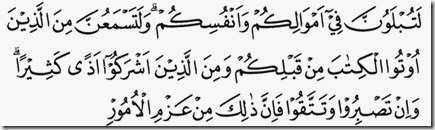 لَتُبْلَوُنَّ فِيْٓ اَمْوَالِكُمْ وَاَنْفُسِكُمْۗ وَلَتَسْمَعُنَّ مِنَ الَّذِيْنَ
اُوْتُوا الْكِتٰبَ مِنْ قَبْلِكُمْ وَمِنَ الَّذِيْنَ اَشْرَكُوْٓا اَذًى كَثِيْرًاۗ
وَاِنْ تَصْبِرُوْا وَتَتَّقُوْا فَاِنَّ ذٰلِكَ مِنْ عَزْمِ الْاُمُوْرِ